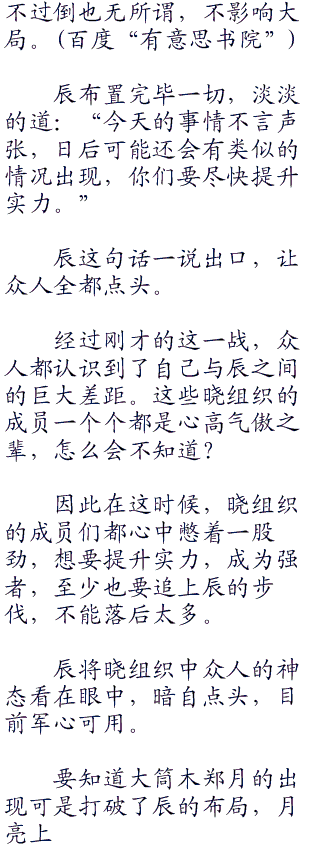 不过倒也无所谓，不影响大
局。(百度“有意思书院”)
辰布置完毕一切，淡淡
的道：“今天的事情不言声
张，日后可能还会有类似的
情况出现，你们要尽快提升
实力。”
辰这句话一说出口，让
众人全都点头。
经过刚才的这一战，众
人都认识到了自己与辰之间
的巨大差距。这些晓组织的
成员一个个都是心高气傲之
辈，怎么会不知道？
因此在这时候，晓组织
的成员们都心中憋着一股
劲，想要提升实力，成为强
者，至少也要追上辰的步
伐，不能落后太多。
辰将晓组织中众人的神
态看在眼中，暗自点头，目
前军心可用。
要知道大筒木郑月的出
现可是打破了辰的布局，月
亮上